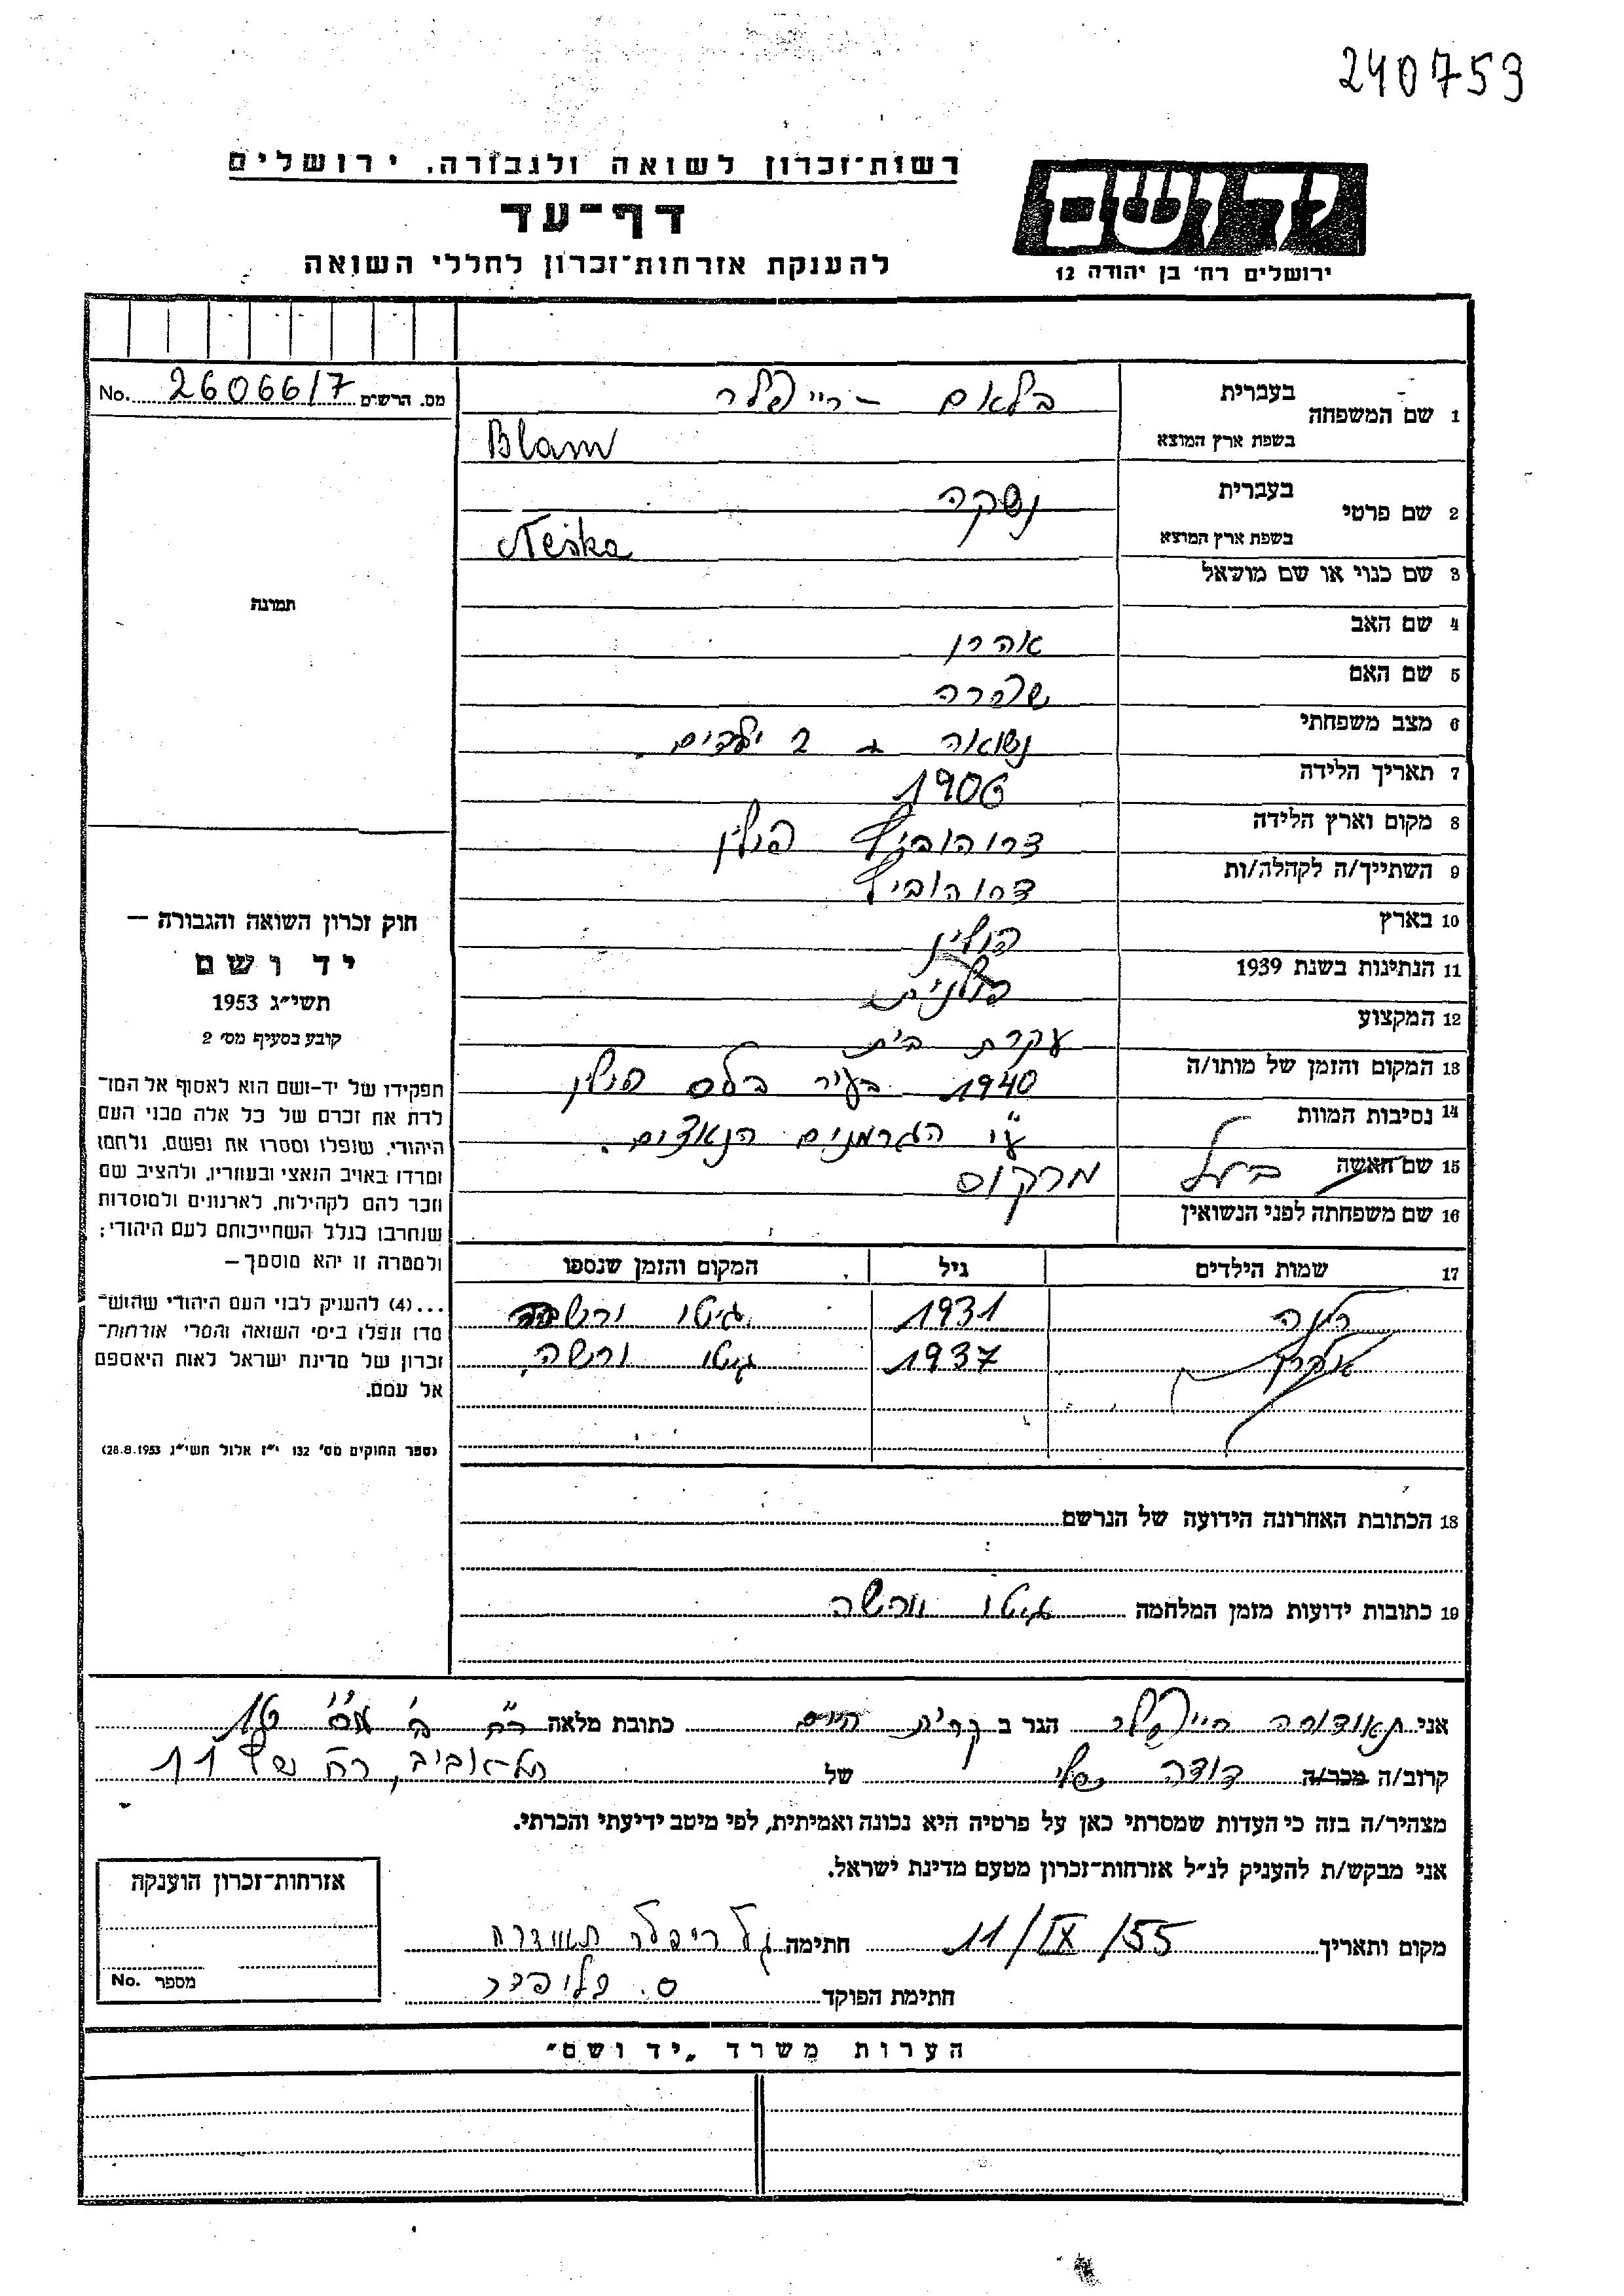 240753
רשות־זכרון לשואה ולגבורה, ירושלים
דף־עד
להענקת אזרחות־זכרון לחללי השואה
יד ושם
ירושלים רח' בן יהודה 12
מס. הרשים 26066/7 No.
1 שם המשפחה בעברית בלאם - רייפלר
בשפת ארץ המוצא Blam
2 שם פרטי בעברית נשקה
בשפת ארץ המוצא Neśka
3 שם כנוי או שם מושאל
4 שם האב אהרן
5 שם האם שרה
6 מצב משפחתי נשואה + 2 ילדים.
7 תאריך הלידה 1906
8 מקום וארץ הלידה דרוהוביץ פולין
9 השתייך/ה לקהלה/ות דרוהוביץ
10 בארץ פולין
11 הנתינות בשנת 1939 פולנית
12 המקצוע עקרת בית
13 המקום והזמן של מותו/ה 1940 בעיר פולין
14 נסיבות המוות ע"י הגרמנים הנאצים.
15 שם האשה בעל מרקוס
16 שם משפחתה לפני הנשואין
17 שמות הילדים גיל המקום והזמן שנספו
1931 גיטו ורשה
1937 גיטו ורשה
18 הכתובת האחרונה הידועה של הנרשם
19 כתובות ידועות מזמן המלחמה גיטו וורשה
תמונה
חוק זכרון השואה והגבורה —
יד ושם
תשי"ג 1953
קובע בסעיף מס' 2
תפקידו של יד-ושם הוא לאסוף אל המו־
לדת את זכרם של כל אלה מבני העם
היהודי, שנפלו ומסרו את נפשם, נלחמו
ומרדו באויב הנאצי ובעוזריו, ולהציב שם
וזכר להם לקהילות, לארגונים ולמוסדות
שנחרבו בגלל השתייכותם לעם היהודי;
ולמטרה זו יהא מוסמך —
...(4) להעניק לבני העם היהודי שהוש־
מדו ונפלו בימי השואה והמרי אזרחות־
זכרון של מדינת ישראל לאות היאספם
אל עמם.
(ספר החוקים מס' 132 י"ז אלול תשי"ג 28.8.1953)
אני תאודורה רייפלר הגר ב קרית כתובת מלאה 16
קרוב/ה מכר/ה דודה של תל-אביב, רח' 11
מצהיר/ה בזה כי העדות שמסרתי כאן על פרטיה היא נכונה ואמיתית, לפי מיטב ידיעתי והכרתי.
אני מבקש/ת להעניק לנ"ל אזרחות־זכרון מטעם מדינת ישראל.
מקום ותאריך 11/IX/55 חתימה
חתימת הפוקד
אזרחות־זכרון הוענקה
מספר No.
הערות משרד „יד ושם"